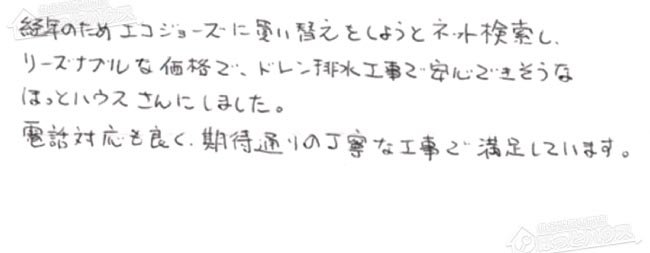 経年のためエコジョーズに買い替えをしようとネット検索し、
リーズナブルな価格で、ドレン排水工事で安心できそうな
ほっとハウスさんにしました。
電話対応も良く、期待通りの丁寧な工事で満足しています。
ほっとハウス